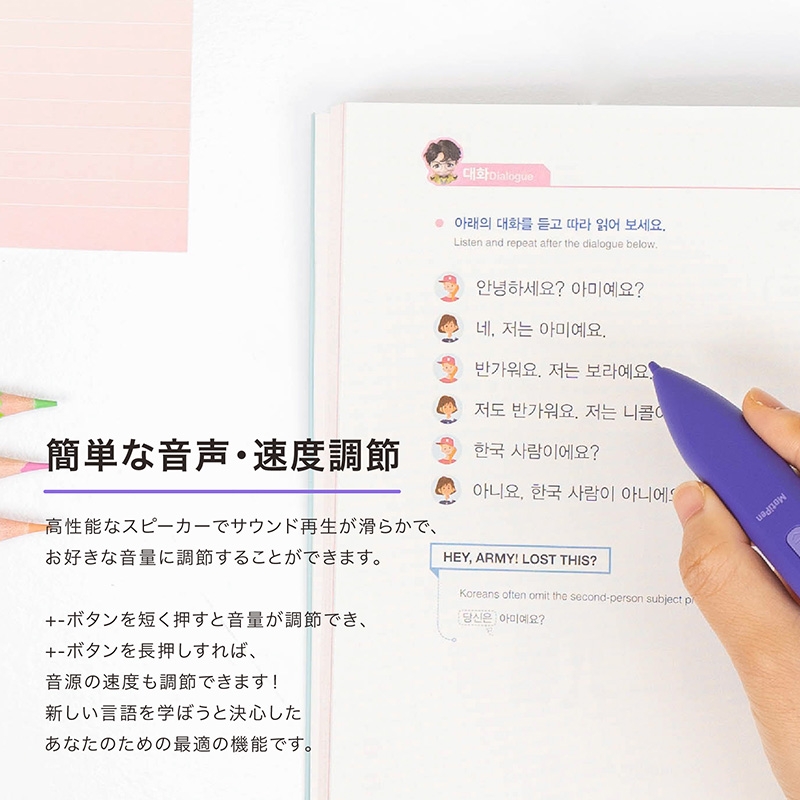 대화 Dialogue
아래의 대화를 듣고 따라 읽어 보세요.
Listen and repeat after the dialogue below.
안녕하세요? 아미예요?
네, 저는 아미예요.
반가워요. 저는 보라예요.
저도 반가워요. 저는 니콜
한국 사람이에요?
아니요, 한국 사람이 아니에
HEY, ARMY! LOST THIS?
Koreans often omit the second-person subject
당신은 아미예요?
MotiPen
簡単な音声・速度調節
高性能なスピーカーでサウンド再生が滑らかで、
お好きな音量に調節することができます。
+-ボタンを短く押すと音量が調節でき、
+-ボタンを長押しすれば、
音源の速度も調節できます!
新しい言語を学ぼうと決心した
あなたのための最適の機能です。